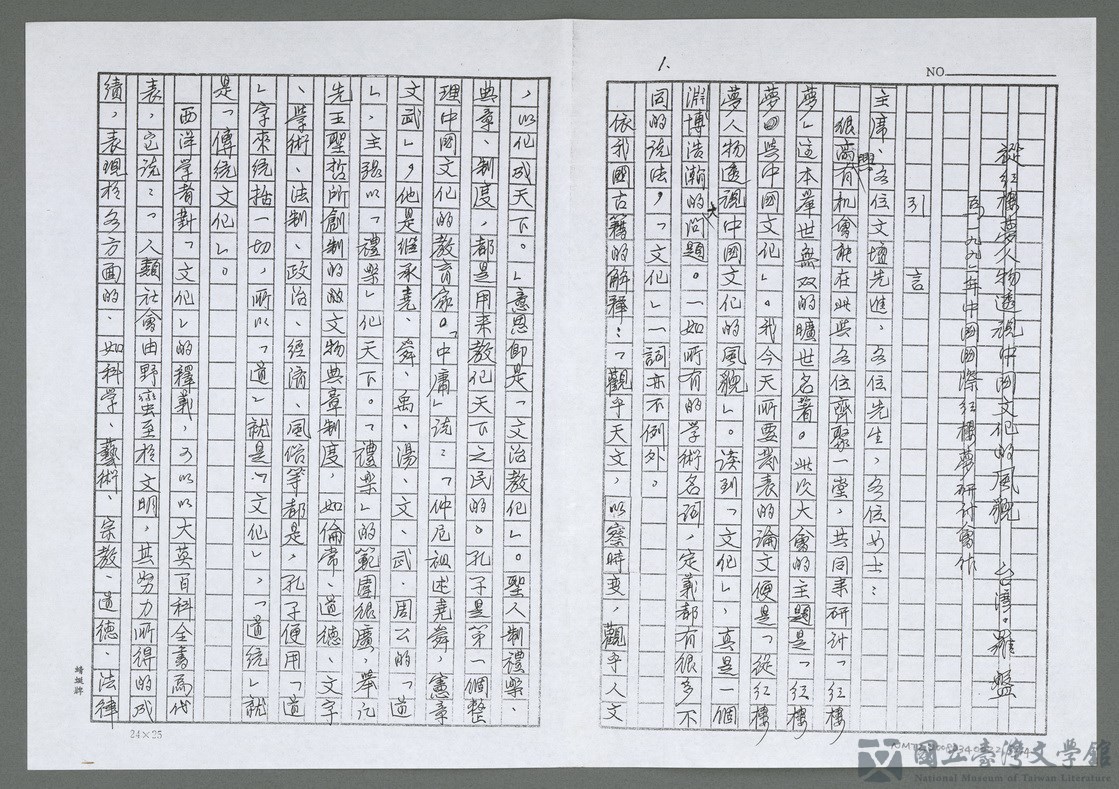 1.
NO
從紅樓夢人物透視中國文化的風貌 台灣。羅盤
一九九二年中國國際紅樓夢研討會作
引言
主席、各位文壇先進、各位先生，各位女士：
很高興有機會能在此與各位齊聚一堂，共同來研討「紅樓
夢」這本舉世無双的曠世名著。此次大會的主題是「紅樓
夢與中國文化」。我今天所要發表的論文便是「從紅樓
夢人物透視中國文化的風貌」。談到「文化」，真是一個
淵博浩瀚的大問題。一如所有的學術名詞，定義都有很多不
同的說法，「文化」一詞亦不例外。
依我國古籍的解釋：「觀乎天文，以察時變，觀乎人文
，以化成天下。」意思即是「文治教化」。聖人制禮樂、
典章、制度，都是用来教化天下之民的。孔子是第一個整
理中國文化的教育家。「中庸」說：「仲尼祖述堯舜，憲章
文武」，他是继承堯、舜、禹、湯、文、武、周公的「道
」，主張以「禮樂」化天下。「禮樂」的範圍很廣，舉凡
先王聖哲所創制的文物典章制度，如倫常、道德、文字
、學術、法制、政治、經濟、風俗等都是，孔子便用「道
」字來統括一切，所以「道」就是「文化」，「道統」就
是「傳統文化」。
西洋學者對「文化」的釋義，可以以大英百科全書為代
表，它說：「人類社會由野蠻至於文明，其努力所得的成
績，表現於各方面的、如科学、藝術、宗教、道德、法律
蜻蜓牌
24×25
國立臺灣文學館
National Museum of Taiwan Literature